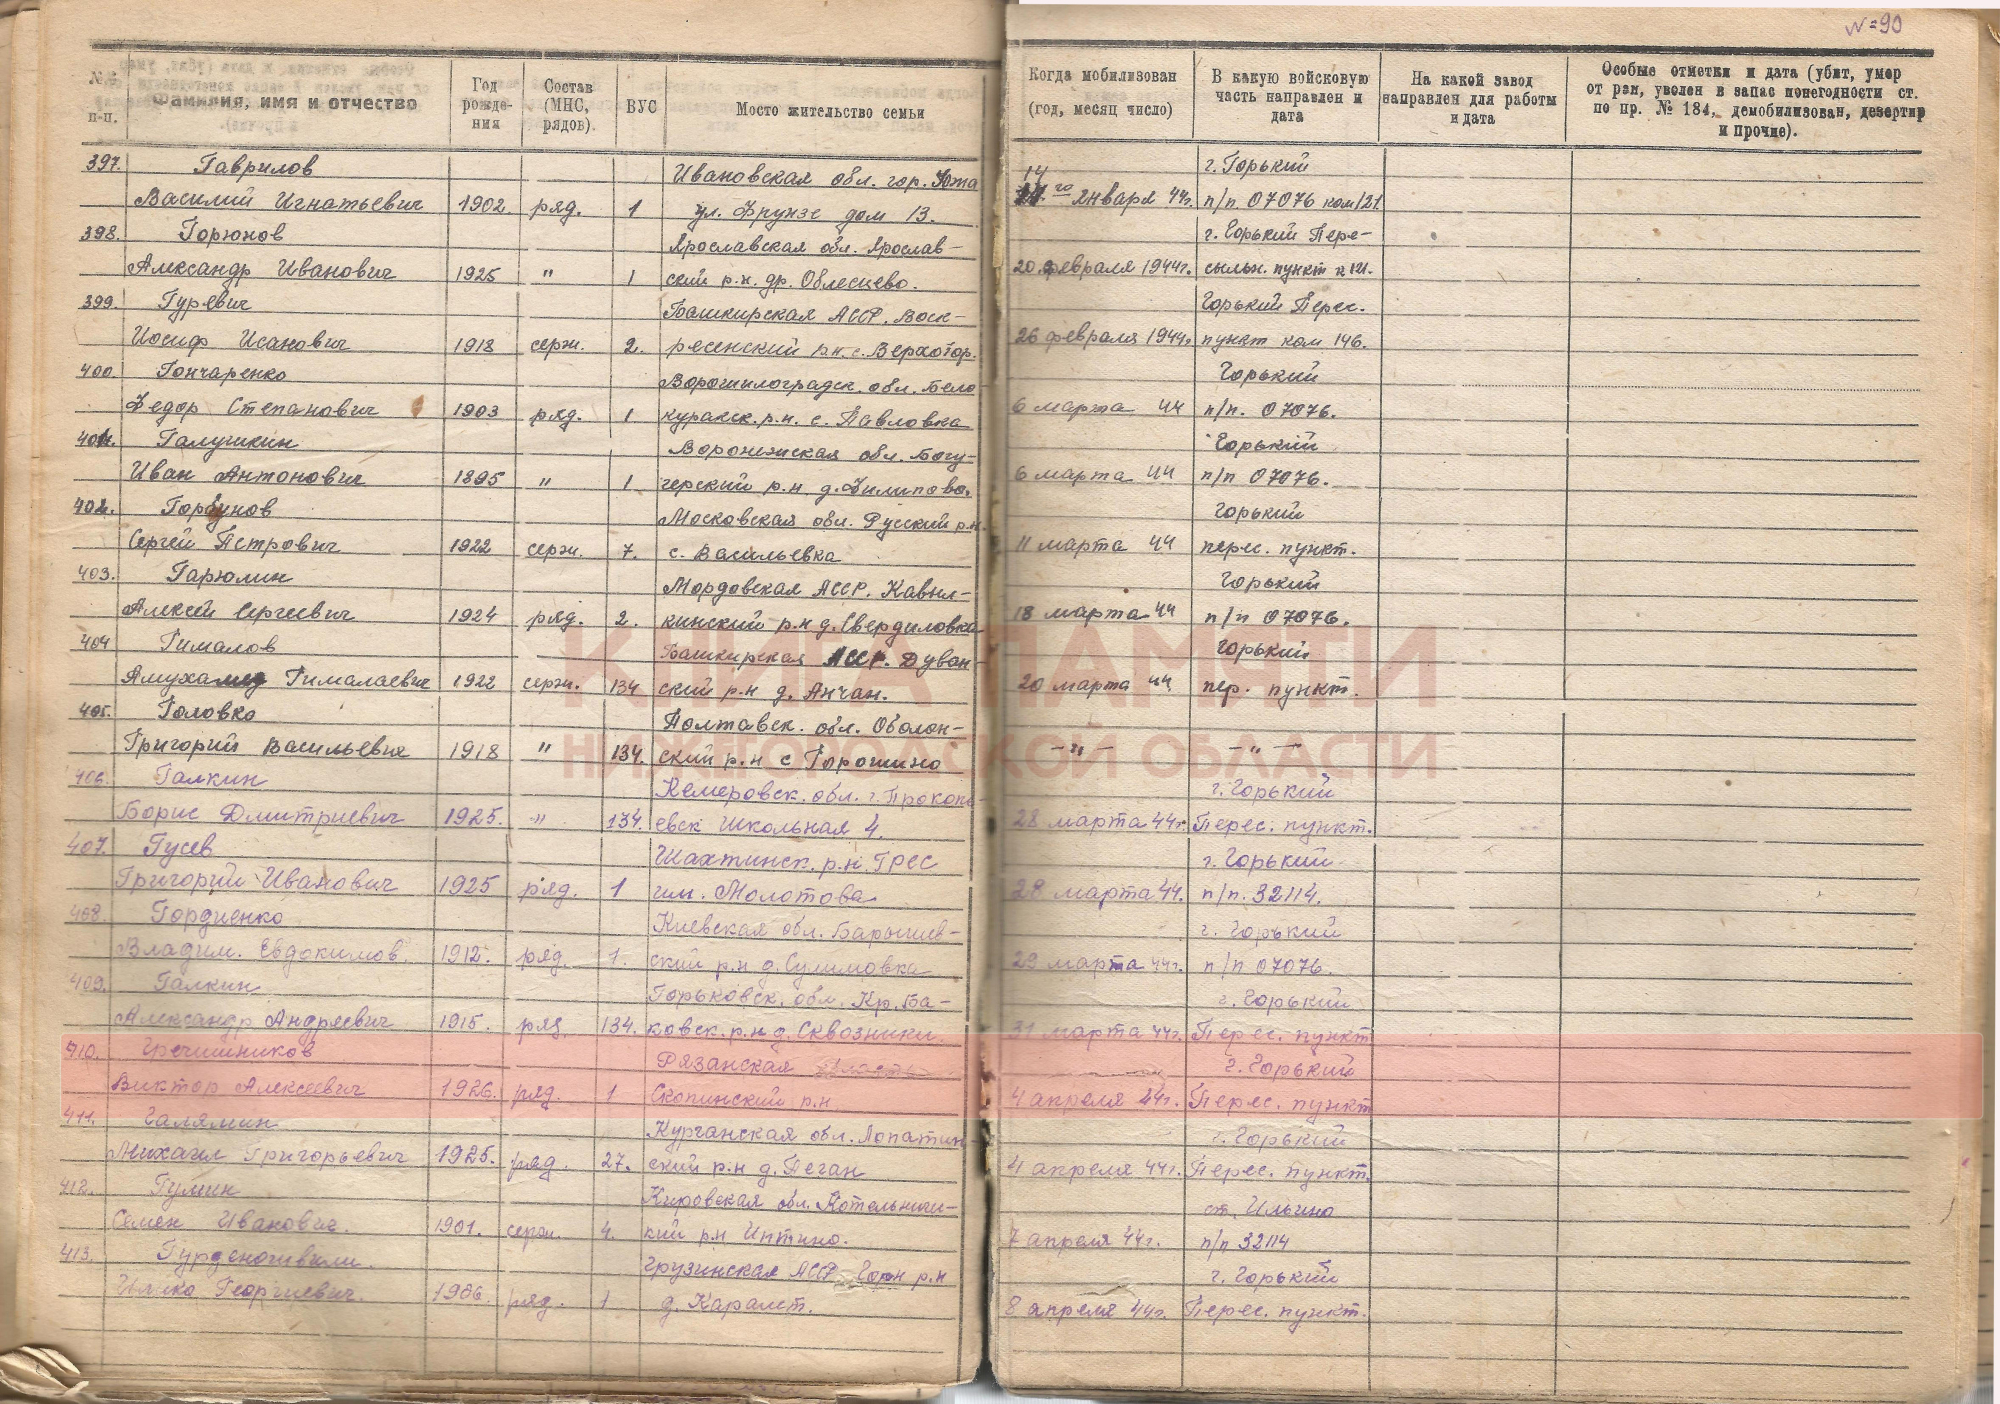 № 90
№№ п-п.
Фамилия, имя и отчество
Год рожде-ния
Состав (МНС, рядов).
ВУС
Место жительство семьи
Когда мобилизован (год, месяц число)
В какую войсковую часть направлен и дата
На какой завод направлен для работы и дата
Особые отметки и дата (убит, умер от ран, уволен в запас понегодности ст. по пр. № 184, демобилизован, дезертир и прочие).
397. Гаврилов Ивановская обл. гор. Южа 14 г. Горький
Василий Игнатьевич 1902. ряд. 1 ул. Фрунзе дом 13. го января 44г. п/п. 07076 ком/121.
398. Горюнов Ярославская обл. Ярослав- г. Горький Пере-
Александр Иванович 1925 " 1 ский р.н. др. Облесцево. 20 февраля 1944г. сыльн. пункт к 121.
399. Гуревич Башкирская АССР. Воск- Горький Перес.
Иосиф Исакович 1918 серж. 2. ресенский р.н. с. Верхотор. 26 февраля 1944г. пункт ком 146.
400. Гончаренко Ворошилоградск. обл. Бело- Горький
Федор Степанович 1903 ряд. 1 куракск. р.н. с. Павловка 6 марта 44 п/п. 07076.
401. Галушкин Воронежская обл. Богу- Горький
Иван Антонович 1895 " 1 черский р.н д. Филипово. 6 марта 44 п/п 07076.
402. Горбунов Московская обл. Русский р.н. Горький
Сергей Петрович 1922 серж. 7. с. Васильевка 11 марта 44 перес. пункт.
403. Гарюлин Мордовская АССР. Кавыл- Горький
Алексей Сергеевич 1924 ряд. 2. кинский р.н д. Свердиловка 18 марта 44 п/п 07076.
404 Гималов Башкирская АССР. Дуван- Горький
Амухамед Гималаевич 1922 серж. 134 ский р.н д. Анчан. 20 марта 44 пер. пункт.
405. Головко Полтавск. обл. Оболон-
Григорий Васильевич 1918 " 134. ский р.н с Горошино -"- -"-
406. Галкин Кемеровск. обл. г. Прокопь- г. Горький
Борис Дмитриевич 1925. -"- 134. евск Школьная 4. 28 марта 44г. Перес. пункт.
407. Гусев Шахтинск. р.н. ГРЕС г. Горький
Григорий Иванович 1925 ряд. 1 им. Молотова 28 марта 44. п/п. 32114.
408. Гордиенко Киевская обл. Барышев- г. Горький
Владим. Евдокимов. 1912. ряд. 1. ский р.н д. Сулимовка 29 марта 44г. п/п 07076.
409. Галкин Горьковск. обл. Кр. Ба- г. Горький
Александр Андреевич 1915. ряд. 134. ковск. р.н д. Сквозники. 31 марта 44г. Перес. пункт
410. Гречишников Рязанская область г. Горький
Виктор Алексеевич 1926. ряд. 1 Скопинский р.н 4 апреля 44г. Перес. пункт
411. Галямин Курганская обл. Лопатин г. Горький
Михаил Григорьевич 1925. ряд. 27. ский р.н д. Пеган 4 апреля 44г. Перес. пункт.
412. Гулин Кировская обл. Котельнич- ст. Ильино
Семен Иванович. 1901. серж. 4. кий р.н Интино. 7 апреля 44г. п/п 32114
413. Грузинская АССР Гори р.н г. Горький
Георгиевич. 1906. ряд. 1 д. Каралет. 8 апреля 44г. Перес. пункт.
КНИГА ПАМЯТИ
НИЖЕГОРОДСКОЙ ОБЛАСТИ